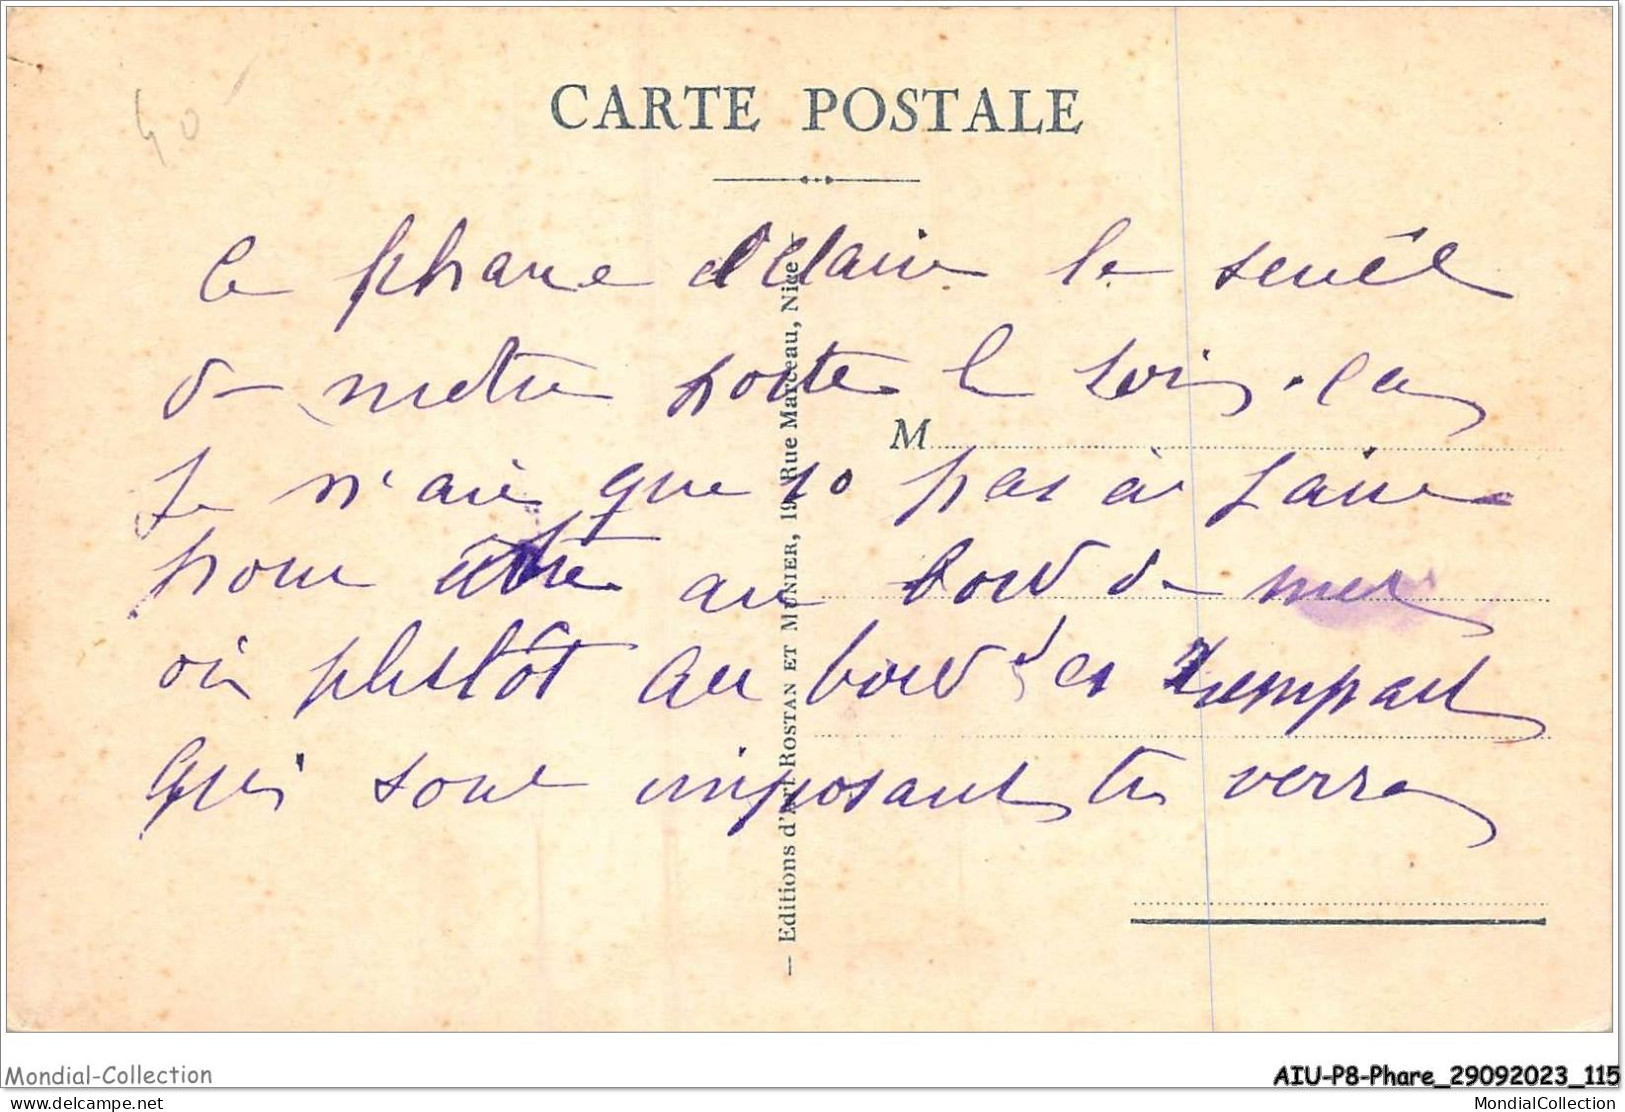 40
CARTE POSTALE
Ce phare éclaire le seuil
de notre porte le soir. car
Je n'ai que 10 pas à faire
pour être au bord de mer
ou plutôt au bord des rempart
qui sont imposant tu verra
M
— Editions d'Art ROSTAN ET MUNIER, 19 Rue Marceau, Nice —
Mondial-Collection
AIU-P8-Phare_29092023_115
delcampe.net
MondialCollection